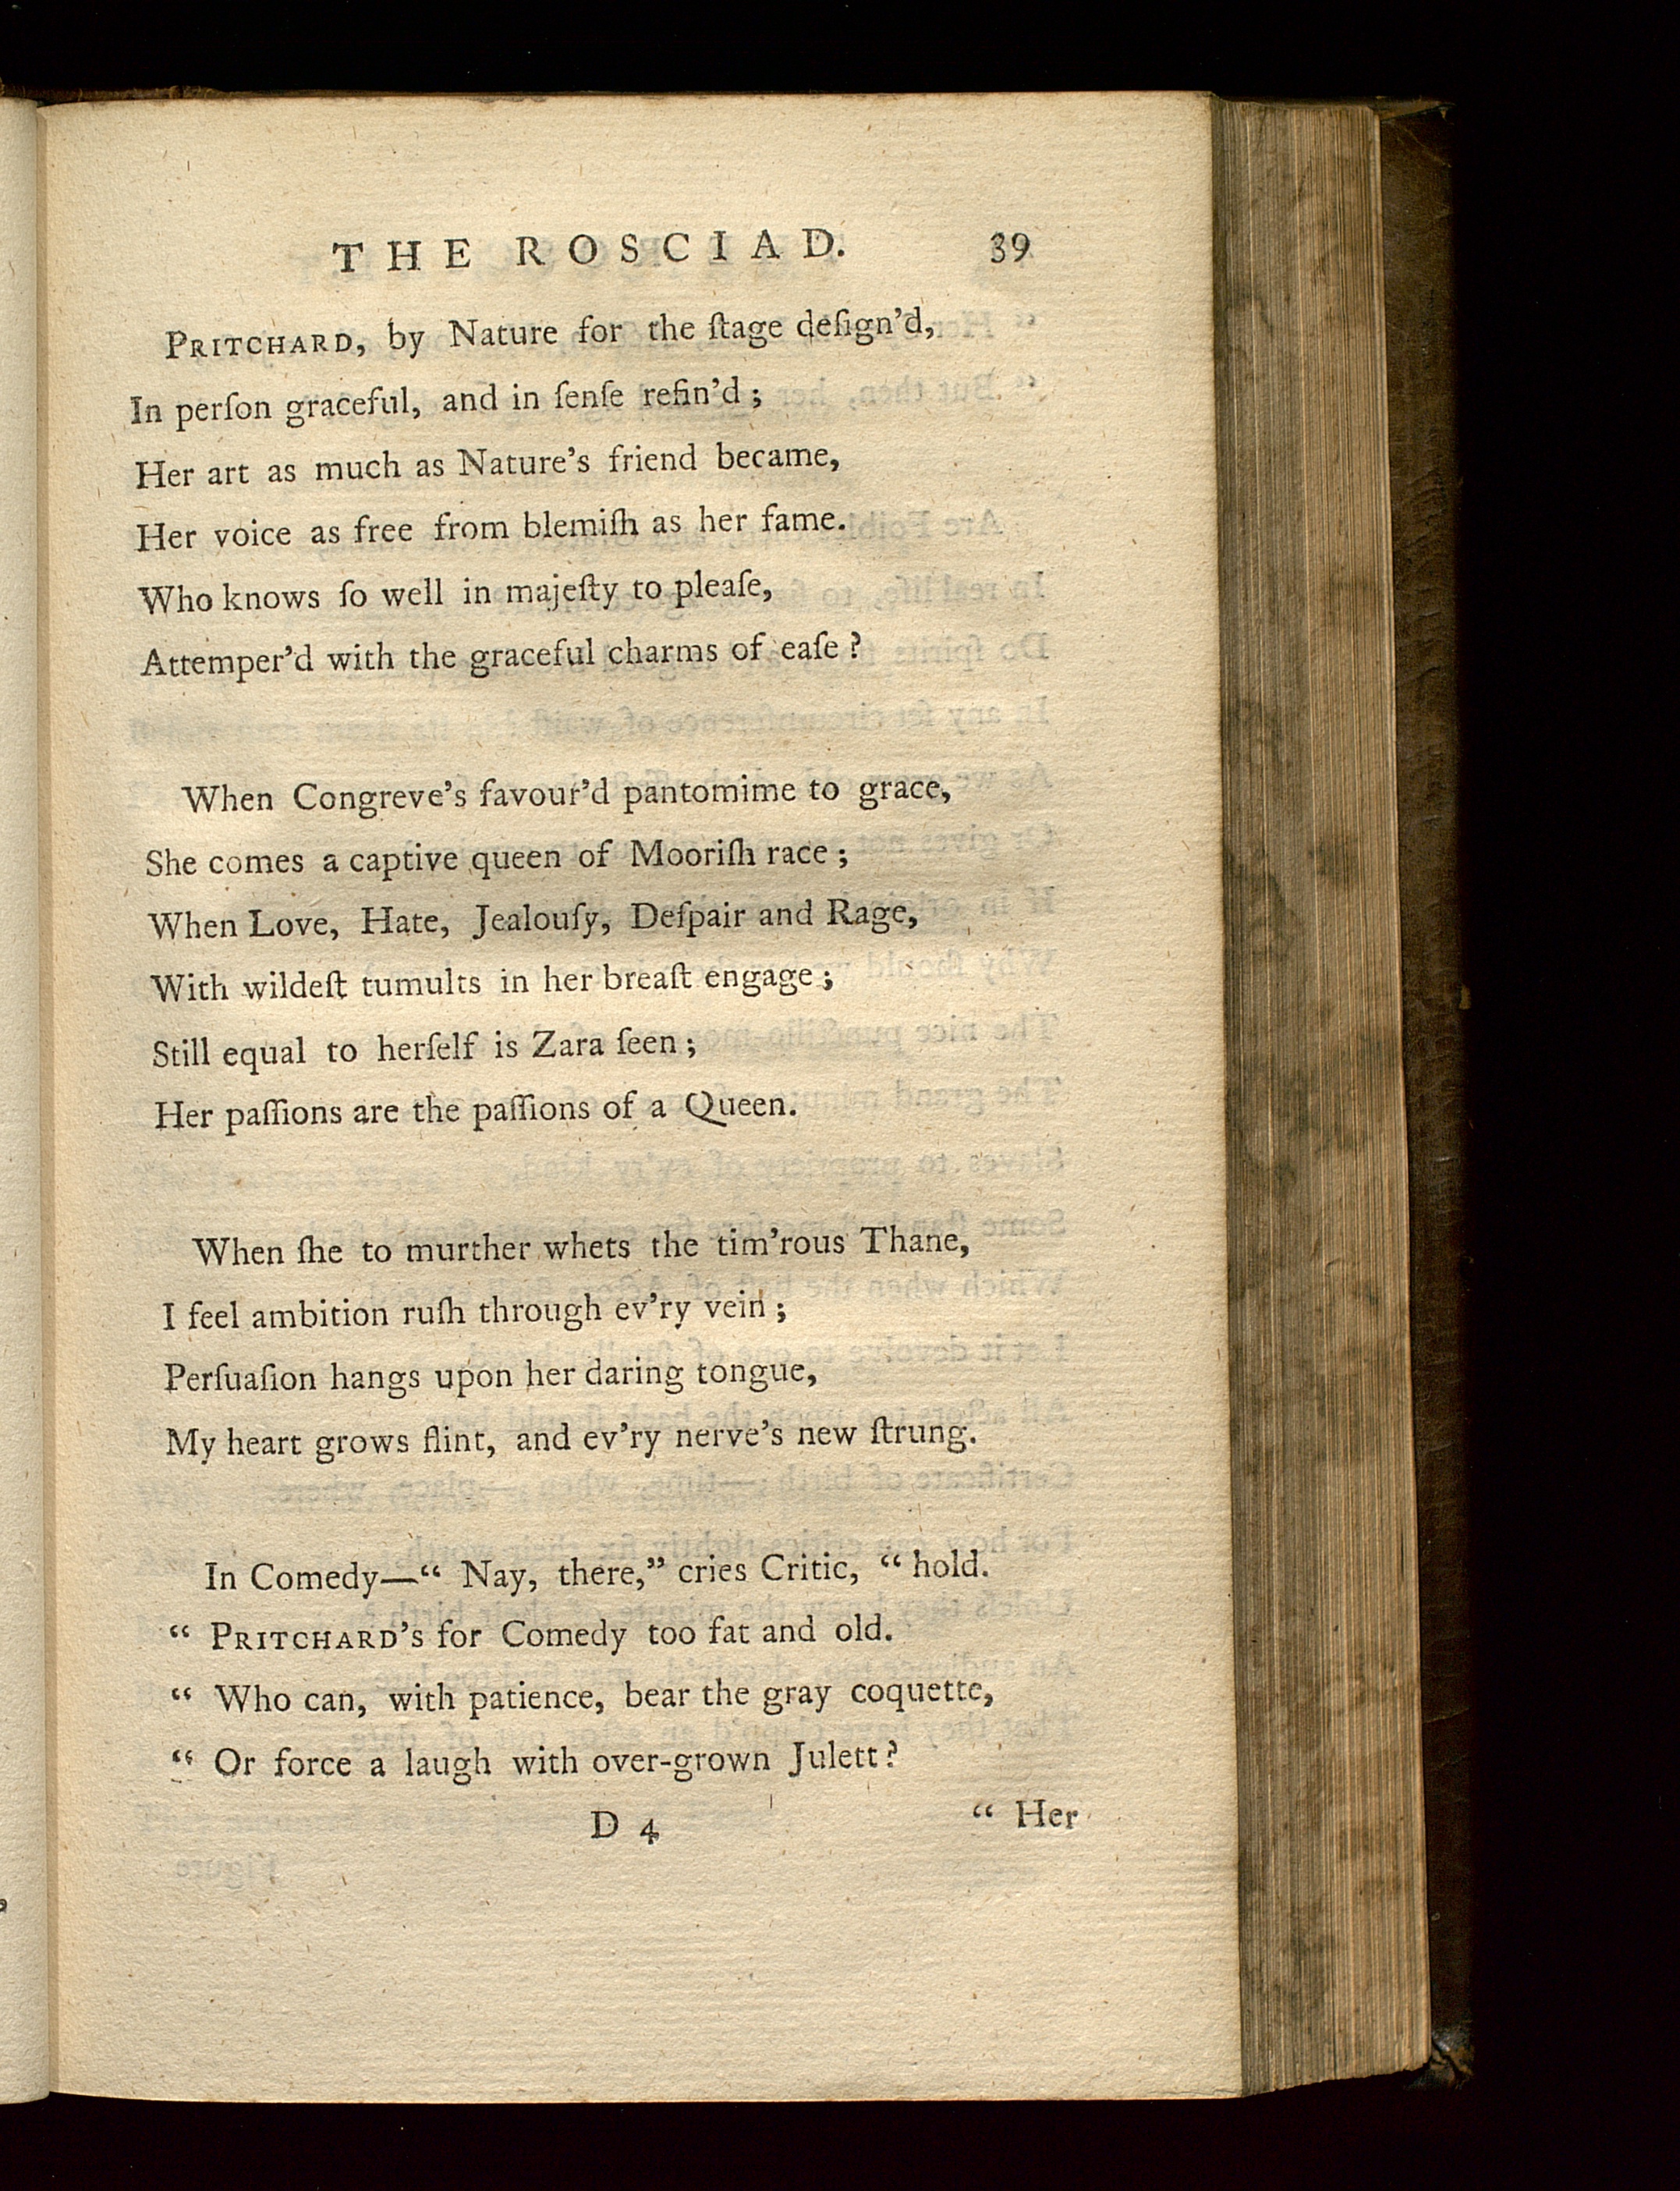 THE ROSCIAD. 39
PRITCHARD, by Nature for the ſtage deſign'd,
In perſon graceful, and in ſenſe refin'd;
Her art as much as Nature's friend became,
Her voice as free from blemiſh as her fame.
Who knows ſo well in majeſty to pleaſe,
Attemper'd with the graceful charms of eaſe?
When Congreve's favour'd pantomime to grace,
She comes a captive queen of Mooriſh race;
When Love, Hate, Jealouſy, Deſpair and Rage,
With wildeſt tumults in her breaſt engage;
Still equal to herſelf is Zara ſeen;
Her paſſions are the paſſions of a Queen.
When ſhe to murther whets the tim'rous Thane,
I feel ambition ruſh through ev'ry vein;
Perſuaſion hangs upon her daring tongue,
My heart grows flint, and ev'ry nerve's new ſtrung.
In Comedy—“ Nay, there,” cries Critic, “ hold.
“ PRITCHARD's for Comedy too fat and old.
“ Who can, with patience, bear the gray coquette,
“ Or force a laugh with over-grown Julett?
D 4 “ Her